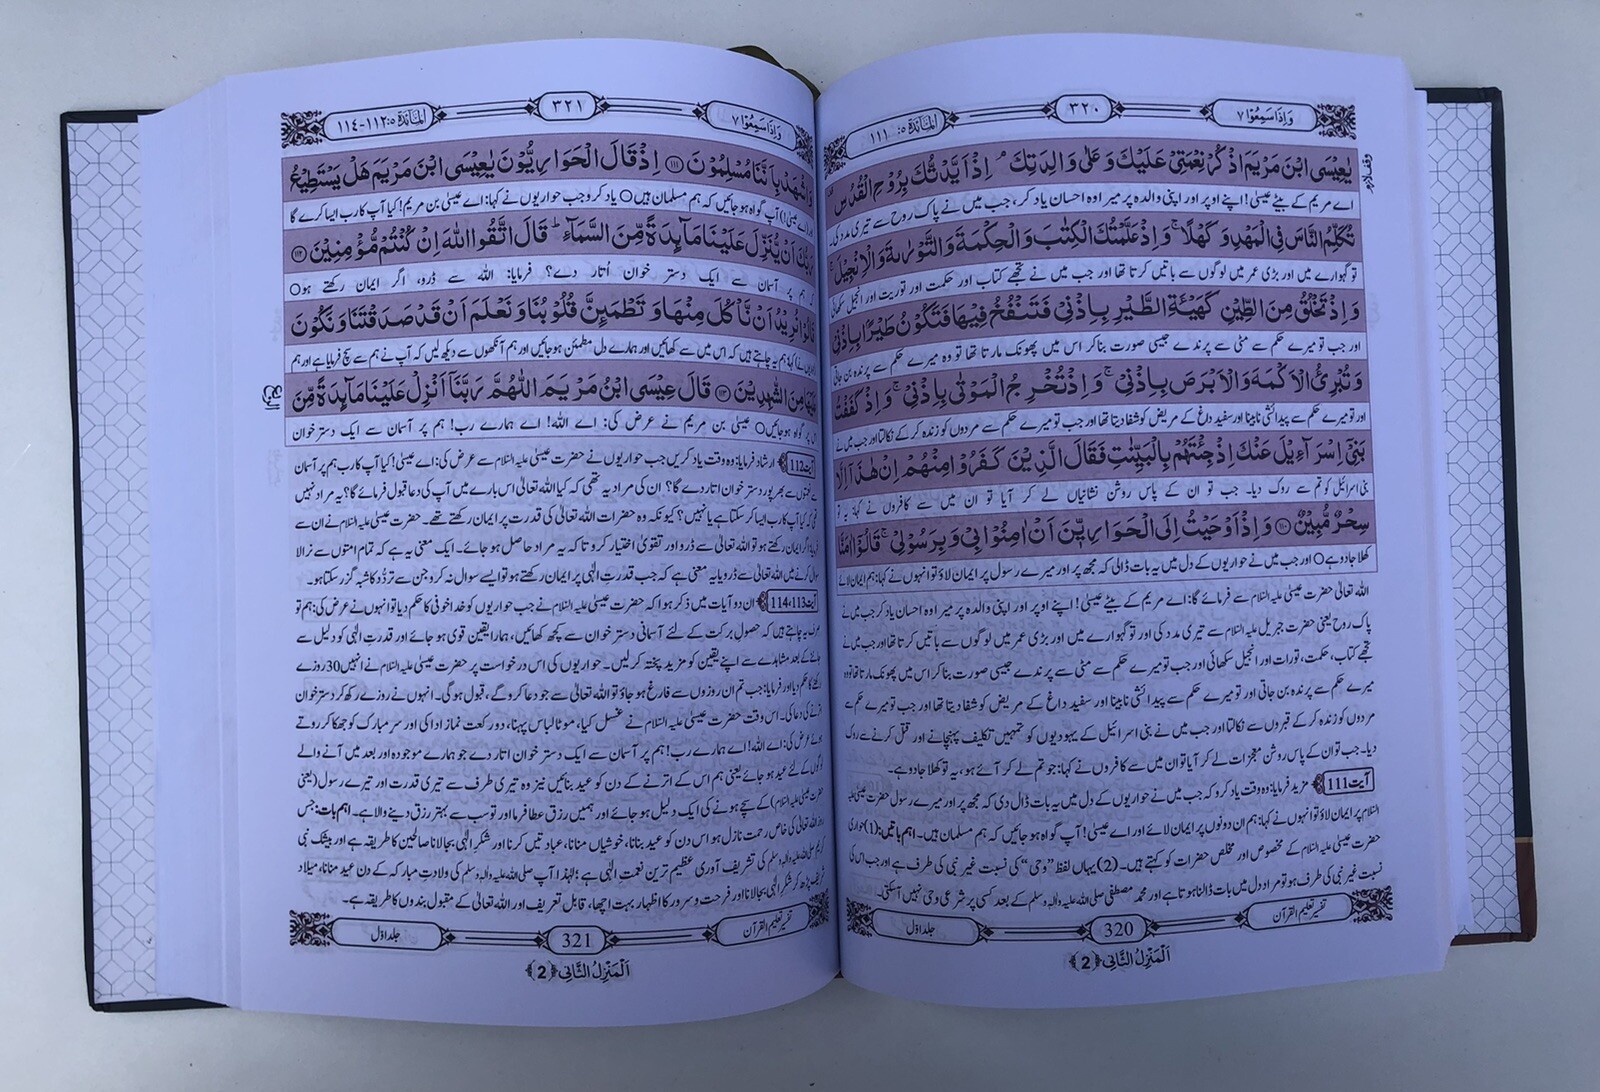 وَاِذَاسَمِعُوْا ۷
۳۲۰
اَلْمَآئِدَة ۵: ۱۱۱
یٰعِیْسَی ابْنَ مَرْیَمَ اذْكُرْ نِعْمَتِیْ عَلَیْكَ وَ عَلٰى وَالِدَتِكَ ۘ اِذْ اَیَّدْتُّكَ بِرُوْحِ الْقُدُسِ
اے مریم کے بیٹے عیسیٰ! اپنے اوپر اور اپنی والدہ پر میرا وہ احسان یاد کر، جب میں نے پاک روح سے تیری مدد کی۔
تُكَلِّمُ النَّاسَ فِی الْمَهْدِ وَ كَهْلًا ۚ وَ اِذْ عَلَّمْتُكَ الْكِتٰبَ وَ الْحِكْمَةَ وَ التَّوْرٰىةَ وَ الْاِنْجِیْلَ ۚ
تو گہوارے میں اور بڑی عمر میں لوگوں سے باتیں کرتا تھا اور جب میں نے تجھے کتاب اور حکمت اور توریت اور انجیل سکھائی
وَ اِذْ تَخْلُقُ مِنَ الطِّیْنِ كَهَیْــٴَـةِ الطَّیْرِ بِاِذْنِیْ فَتَنْفُخُ فِیْهَا فَتَكُوْنُ طَیْرًۢا بِاِذْنِیْ
اور جب تو میرے حکم سے مٹی سے پرندے جیسی صورت بنا کر اس میں پھونک مارتا تھا تو وہ میرے حکم سے پرندہ بن جاتی
وَ تُبْرِئُ الْاَكْمَهَ وَ الْاَبْرَصَ بِاِذْنِیْ ۚ وَ اِذْ تُخْرِ جُ الْمَوْتٰى بِاِذْنِیْ ۚ وَ اِذْ كَفَفْتُ
اور تو میرے حکم سے پیدائشی نابینا اور سفید داغ کے مریض کو شفا دیتا تھا اور جب تو میرے حکم سے مردوں کو زندہ کر کے نکالتا اور جب میں نے
بَنِیْۤ اِسْرَآءِیْلَ عَنْكَ اِذْ جِئْتَهُمْ بِالْبَیِّنٰتِ فَقَالَ الَّذِیْنَ كَفَرُوْا مِنْهُمْ اِنْ هٰذَاۤ اِلَّا
بنی اسرائیل کو تم سے روک دیا۔ جب تو ان کے پاس روشن نشانیاں لے کر آیا تو ان میں سے کافروں نے کہا: یہ تو
سِحْرٌ مُّبِیْنٌ ﴿۱۱۰﴾ وَ اِذْ اَوْحَیْتُ اِلَى الْحَوَارِیّٖنَ اَنْ اٰمِنُوْا بِیْ وَ بِرَسُوْلِیْ ۚ قَالُوْۤا اٰمَنَّا
کھلا جادو ہے○ اور جب میں نے حواریوں کے دل میں یہ بات ڈالی کہ مجھ پر اور میرے رسول پر ایمان لاؤ تو انہوں نے کہا: ہم ایمان لائے
اللہ تعالیٰ حضرت عیسیٰ علیہ السّلام سے فرمائے گا: اے مریم کے بیٹے عیسیٰ! اپنے اوپر اور اپنی والدہ پر میرا وہ احسان یاد کر جب میں نے
پاک روح یعنی حضرت جبریل علیہ السّلام سے تیری مدد کی اور تو گہوارے میں اور بڑی عمر میں لوگوں سے باتیں کرتا تھا اور جب میں نے
تجھے کتاب، حکمت، تورات اور انجیل سکھائی اور جب تو میرے حکم سے مٹی سے پرندے جیسی صورت بنا کر اس میں پھونک مارتا تھا تو وہ
میرے حکم سے پرندہ بن جاتی اور تو میرے حکم سے پیدائشی نابینا اور سفید داغ کے مریض کو شفا دیتا تھا اور جب تو میرے حکم سے
مردوں کو زندہ کر کے قبروں سے نکالتا اور جب میں نے بنی اسرائیل کے یہودیوں کو تمہیں تکلیف پہنچانے اور قتل کرنے سے روک
دیا۔ جب تو ان کے پاس روشن معجزات لے کر آیا تو ان میں سے کافروں نے کہا: جو تم لے کر آئے ہو، یہ تو کھلا جادو ہے۔
آیت111 مزید فرمایا: وہ وقت یاد کرو کہ جب میں نے حواریوں کے دل میں یہ بات ڈال دی کہ مجھ پر اور میرے رسول حضرت عیسیٰ علیہ
السّلام پر ایمان لاؤ تو انہوں نے کہا: ہم ان دونوں پر ایمان لائے اور اے عیسیٰ! آپ گواہ ہو جائیں کہ ہم مسلمان ہیں۔ اہم باتیں: (1) حواری
حضرت عیسیٰ علیہ السّلام کے مخصوص اور مخلص حضرات کو کہتے ہیں۔ (2) یہاں لفظ ”وحی“ کی نسبت غیر نبی کی طرف ہے اور جب اس کی
نسبت غیر نبی کی طرف ہو تو مراد دل میں بات ڈالنا ہوتا ہے اور محمد مصطفیٰ صلی اللہ علیہ والہٖ وسلم کے بعد کسی پر شرعی وحی نہیں آسکتی۔
تفسیر تعلیم القرآن
320
جلد اوّل
اَلْمَنْزِلُ الثَّانِی ﴿2﴾
وَاِذَاسَمِعُوْا ۷
۳۲۱
اَلْمَآئِدَة ۵: ۱۱۲-۱۱۴
وَ اشْهَدْ بِاَنَّنَا مُسْلِمُوْنَ ﴿۱۱۱﴾ اِذْ قَالَ الْحَوَارِیُّوْنَ یٰعِیْسَی ابْنَ مَرْیَمَ هَلْ یَسْتَطِیْعُ
عیسیٰ!) آپ گواہ ہو جائیں کہ ہم مسلمان ہیں○ یاد کرو جب حواریوں نے کہا: اے عیسیٰ بن مریم! کیا آپ کا رب ایسا کرے گا
رَبُّكَ اَنْ یُّنَزِّلَ عَلَیْنَا مَآىٕدَةً مِّنَ السَّمَآءِ ؕ قَالَ اتَّقُوا اللّٰهَ اِنْ كُنْتُمْ مُّؤْمِنِیْنَ ﴿۱۱۲﴾
کہ ہم پر آسمان سے ایک دستر خوان اُتار دے؟ فرمایا: اللہ سے ڈرو، اگر ایمان رکھتے ہو○
قَالُوْا نُرِیْدُ اَنْ نَّاْكُلَ مِنْهَا وَ تَطْمَىٕنَّ قُلُوْبُنَا وَ نَعْلَمَ اَنْ قَدْ صَدَقْتَنَا وَ نَكُوْنَ
کہا: ہم یہ چاہتے ہیں کہ اس میں سے کھائیں اور ہمارے دل مطمئن ہو جائیں اور ہم آنکھوں سے دیکھ لیں کہ آپ نے ہم سے سچ فرمایا ہے اور ہم
عَلَیْهَا مِنَ الشّٰهِدِیْنَ ﴿۱۱۳﴾ قَالَ عِیْسَی ابْنُ مَرْیَمَ اللّٰهُمَّ رَبَّنَاۤ اَنْزِلْ عَلَیْنَا مَآىٕدَةً مِّنَ
اس پر گواہ ہو جائیں○ عیسیٰ بن مریم نے عرض کی: اے اللہ! اے ہمارے رب! ہم پر آسمان سے ایک دستر خوان
آیت112 ارشاد فرمایا: وہ وقت یاد کریں جب حواریوں نے حضرت عیسیٰ علیہ السّلام سے عرض کی: اے عیسیٰ! کیا آپ کا رب ہم پر آسمان
سے نعمتوں سے بھرپور دستر خوان اتار دے گا؟ ان کی مراد یہ تھی کہ کیا اللہ تعالیٰ اس بارے میں آپ کی دعا قبول فرمائے گا؟ یہ مراد نہیں
تھی کہ کیا آپ کا رب ایسا کر سکتا ہے یا نہیں؟ کیونکہ وہ حضرات اللہ تعالیٰ کی قدرت پر ایمان رکھتے تھے۔ حضرت عیسیٰ علیہ السّلام نے ان سے
فرمایا: اگر ایمان رکھتے ہو تو اللہ تعالیٰ سے ڈرو اور تقویٰ اختیار کرو تاکہ یہ مراد حاصل ہو جائے۔ ایک معنی یہ ہے کہ تمام امتوں سے نرالا
سوال کرنے میں اللہ تعالیٰ سے ڈرو یا یہ معنی ہے کہ جب قدرتِ الٰہی پر ایمان رکھتے ہو تو ایسے سوال نہ کرو جن سے تردّد کا شبہ گزر سکتا ہو۔
آیت113، 114 ان دو آیات میں ذکر ہوا کہ حضرت عیسیٰ علیہ السّلام نے جب حواریوں کو خدا خوفی کا حکم دیا تو انہوں نے عرض کی: ہم تو
صرف یہ چاہتے ہیں کہ حصولِ برکت کے لئے آسمانی دستر خوان سے کچھ کھائیں، ہمارا یقین قوی ہو جائے اور قدرتِ الٰہی کو دلیل سے
جاننے کے بعد مشاہدے سے اپنے یقین کو مزید پختہ کر لیں۔ حواریوں کی اس درخواست پر حضرت عیسیٰ علیہ السّلام نے انہیں 30 روزے
رکھنے کا حکم دیا اور فرمایا: جب تم ان روزوں سے فارغ ہو جاؤ تو اللہ تعالیٰ سے جو دعا کرو گے، قبول ہوگی۔ انہوں نے روزے رکھ کر دستر خوان
اترنے کی دعا کی۔ اس وقت حضرت عیسیٰ علیہ السّلام نے غسل کیا، موٹا لباس پہنا، دو رکعت نماز ادا کی اور سر مبارک کو جھکا کر روتے
ہوئے عرض کی: اے اللہ! اے ہمارے رب! ہم پر آسمان سے ایک دستر خوان اتار دے جو ہمارے موجودہ اور بعد میں آنے والے
لوگوں کے لئے عید ہو جائے یعنی ہم اس کے اترنے کے دن کو عید بنائیں نیز وہ تیری طرف سے تیری قدرت اور تیرے رسول (یعنی
حضرت عیسیٰ علیہ السّلام) کے سچے ہونے کی ایک دلیل ہو جائے اور ہمیں رزق عطا فرما اور تو سب سے بہتر رزق دینے والا ہے۔ اہم بات: جس
روز اللہ تعالیٰ کی خاص رحمت نازل ہو اس دن کو عید بنانا، خوشیاں منانا، عبادتیں کرنا اور شکرِ الٰہی بجالانا صالحین کا طریقہ ہے اور بیشک نبی
کریم صلی اللہ علیہ والہٖ وسلم کی تشریف آوری عظیم ترین نعمتِ الٰہی ہے؛ لہٰذا آپ صلی اللہ علیہ والہٖ وسلم کی ولادتِ مبارکہ کے دن عید منانا، میلاد
شریف پڑھ کر شکرِ الٰہی بجالانا اور فرحت و سرور کا اظہار بہت اچھا، قابلِ تعریف اور اللہ تعالیٰ کے مقبول بندوں کا طریقہ ہے۔
تفسیر تعلیم القرآن
321
جلد اوّل
اَلْمَنْزِلُ الثَّانِی ﴿2﴾